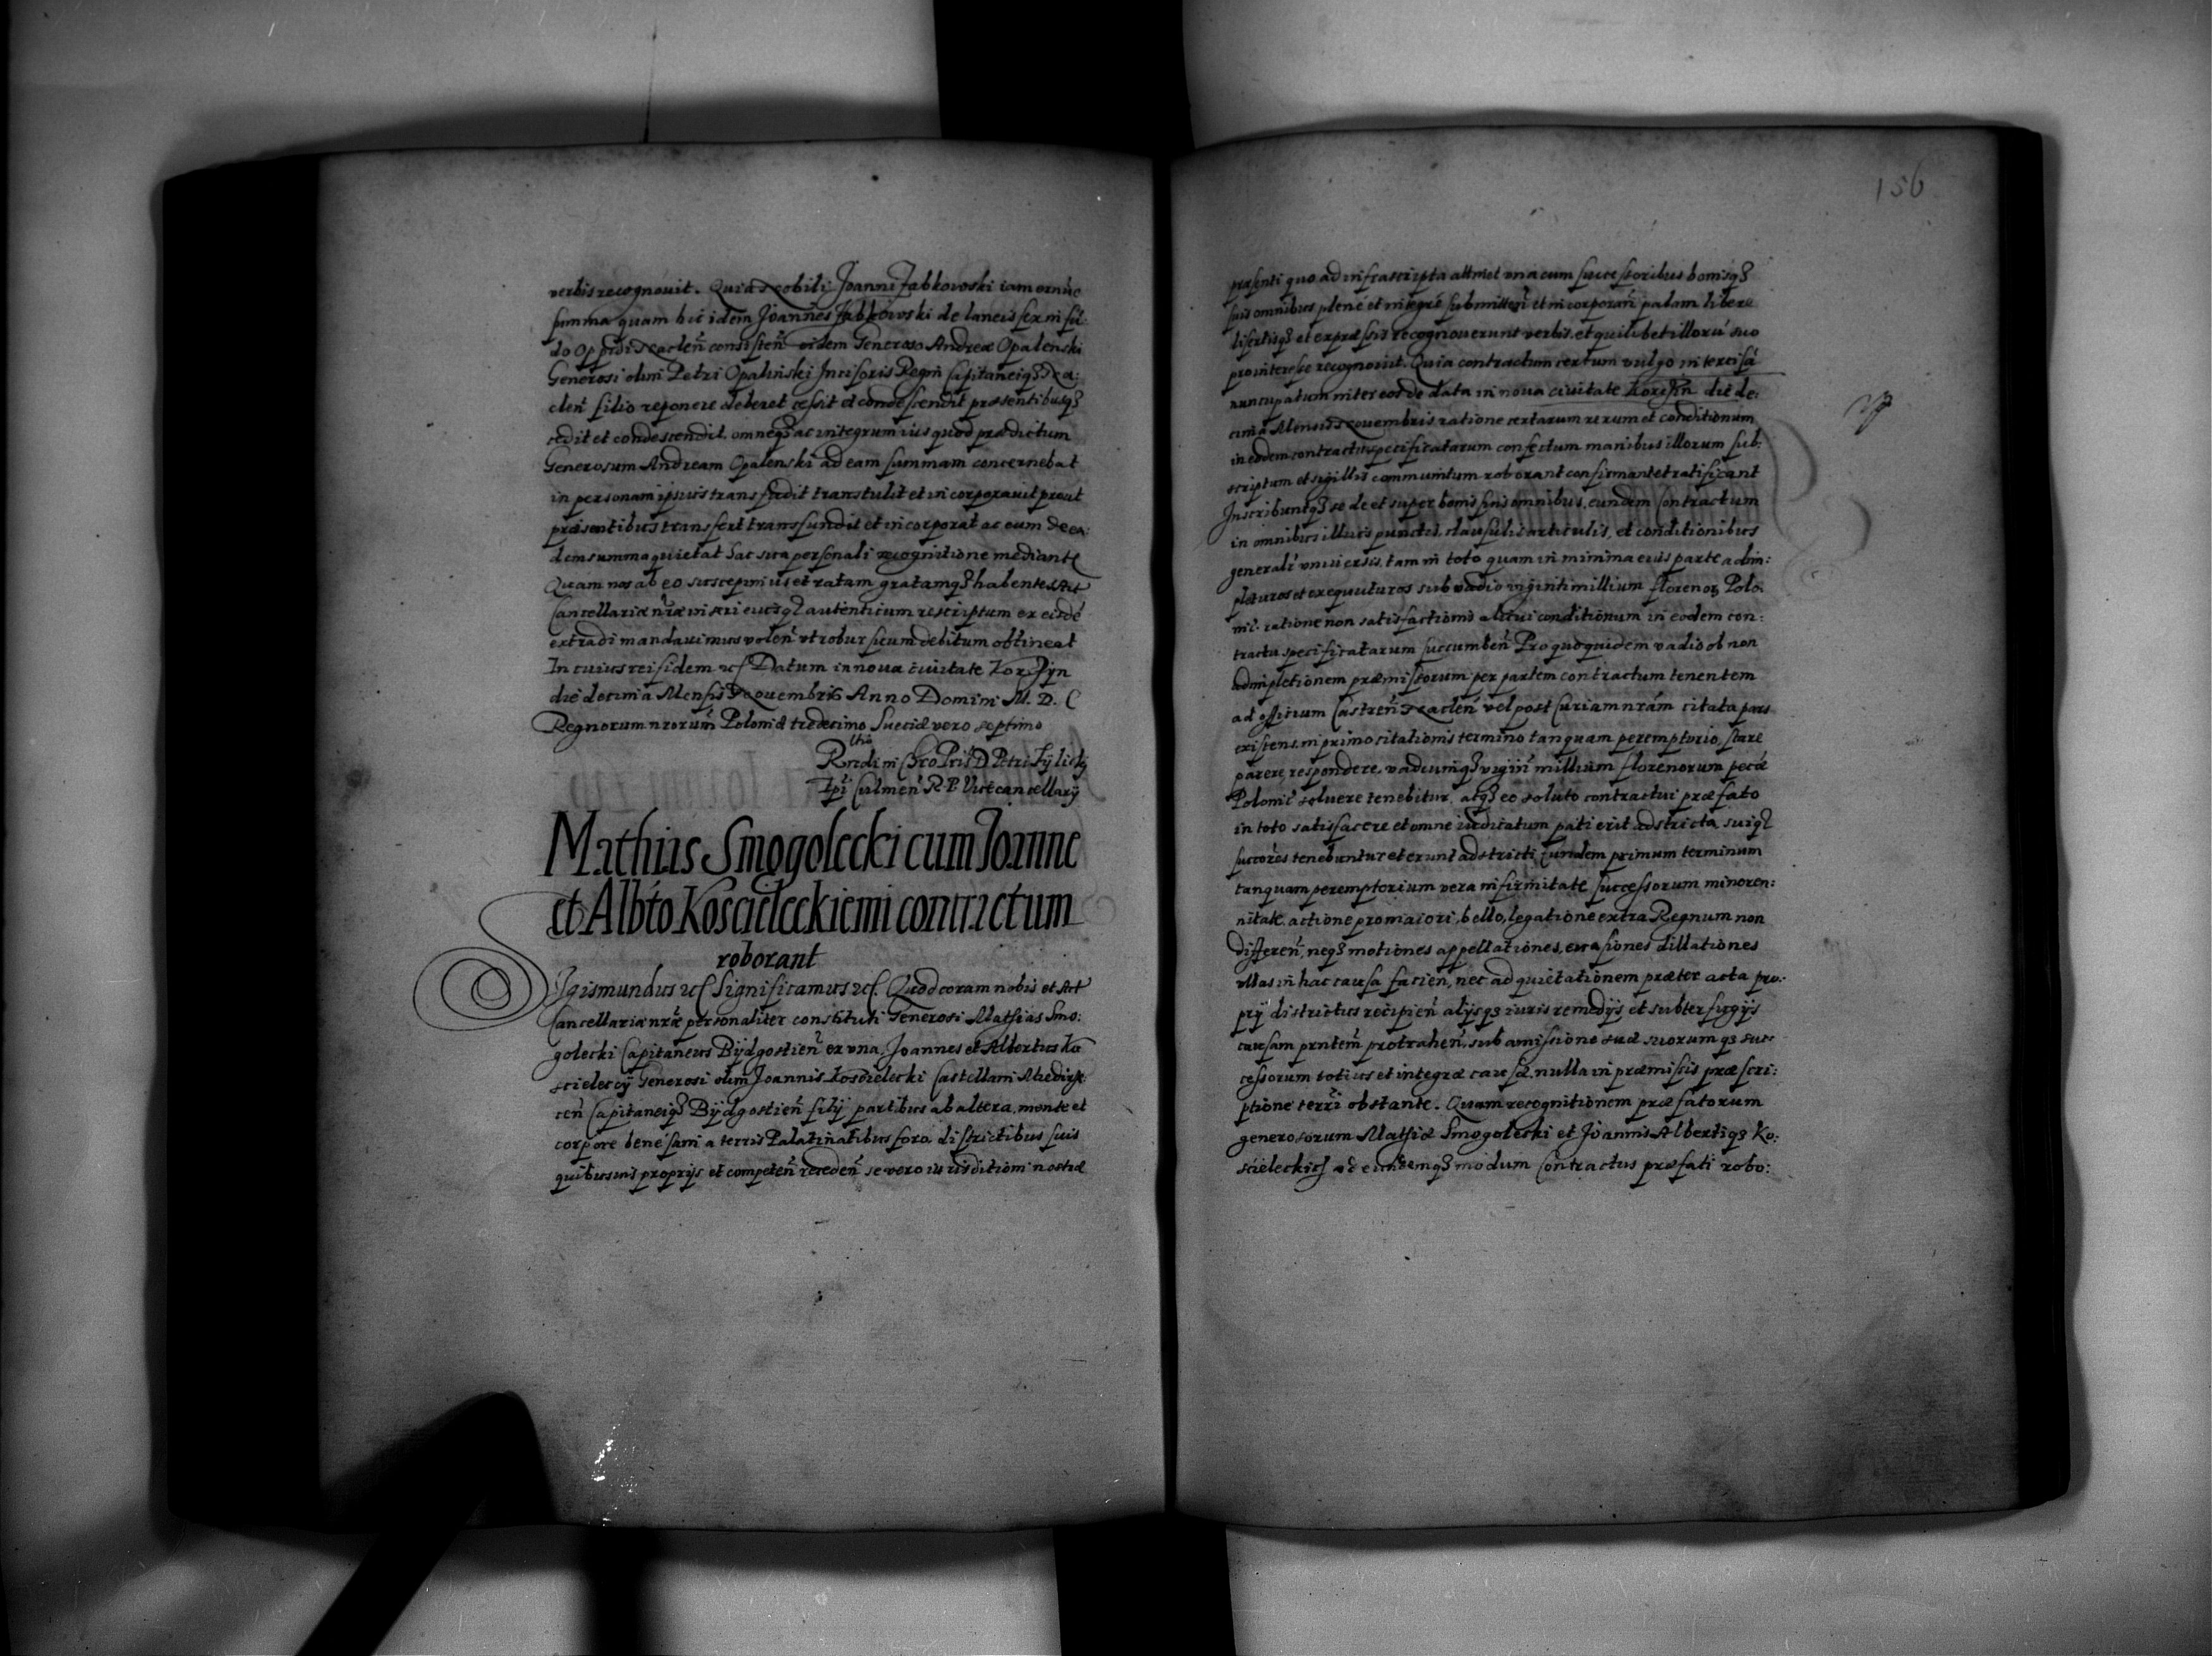 verbis recognouit. Quia Nobili Joanni Jabkowski iam
summa quam hic idem Joannes Jabkowski de laneis sex in fū:
do Oppidi Naclen̄ consisten̄ eidem Generoso Andreæ Opalenski
Generosi olim Petri Opalinski Incisoris Regni Capitaneiqȝ Na:
clen̄ filio reponere deberet cessit et condescendit præsentibusqȝ
cedit et condescendit, omneqȝ ac integrum ius quod prædictum
Generosum Andream Opalenski ad eam summam concernebat
in personam ipsius transfudit transtulit et incorporauit prout
præsentibus transfert transfundit et incorporat ac eum de ea:
dem summa quietat hac sua personali recognitione mediante
Quam nos ab eo suscepimus et ratam gratamqȝ habentes Act
Cancellariæ nr̄æ inseri eiusqȝ autenticum rescriptum ex eisdē
extradi mandauimus volen̄ vt robur suum debitum obtineat
In cuius rei fidem Datum in noua ciuitate Korczyn
die decima Mensis Nouembris Anno Domini M. D. C
Regnorum nrorum̄ Poloniæ tredecimo Sueciæ vero septimo
Rndi in Chro Pris D Petri Tylicky
Epi Culmen̄ R. P. Vicecancellarÿ
Mathias Smogolecki cum Joanne
et Albto Koscieleckiemi contractum
roborant
Sigismundus Significamus Quod coram nobis et Act
Cancellariæ nræ personaliter constituti Generosi Mathias Smo:
golecki Capitaneus Bÿdgostien̄ ex vna, Joannes et Albertus Ko
scieleccÿ Generosi olim Joannis Koscielecki Castellani
cen̄ Capitaneiqȝ Bÿdgostien̄ filÿ partibus ab altera, mente et
corpore bene sani a terris Palatinatibus foro, districtibus suis
quibusuis proprÿs et competen̄ receden̄ se vero iurisditioni nostræ
156
præsenti quo ad infrascripta attinet vna cum successoribus bonisqȝ
suis omnibus plene et integre submitten̄ et incorporan̄ palam libere
disertisqȝ et expræssis recognouerunt verbis, et quilibet illorū suo
pro interesse recognouit. Quia contractum certum vulgo intercisā
nuncupatum inter eos de data in noua ciuitate Korczÿn die de:
cima Mensis Nouembris ratione certarum rerum et conditionum
in eodem contractu specificatarum confectum manibus illorum sub:
scriptum et sigillis communitum roborant confirmant et ratificant
Inscribuntqȝ se de et super bonis suis omnibus, eundem Contractum
in omnibus illius punctis, clausulis articulis, et conditionibus
generalr̄ vniuersis, tam in toto quam in minima eius parte adim:
pleturos et exequuturos sub vadio viginti millium florenoȝ Polo:
nic. ratione non satisfactionis alicui conditionum in eodem con:
tractu specificatarum succumben̄ Pro quoquidem vadio ob non
adimpletionem præmissorum per partem contractum tenentem
ad officium Castren̄ Naclen̄ vel post Curiam nrām citata pars
existens, in primo citationis termino tanquam peremptorio, stare
parere, respondere, vadiumqȝ vigin̄ millium florenorum pecæ
Polonic̄ soluere tenebitur, atqȝ eo soluto contractui præfato
in toto satisfacere et omne iuditatum pati erit adstricta, suiqȝ
succores tenebuntur et erunt adstricti Eundem primum terminum
tanquam peremptorium vera infirmitate successorum minoren:
nitate, actione pro maiori, bello, legatione extra Regnum non
differen̄, neqȝ motiones appellationes, euasiones dillationes
vllas in hac causa facien, nec ad quietationem præter acta pro:
prÿ districtus recipien̄ alÿsqȝ iuris remedÿs et subterfugÿs
causam prntem̄ protrahen̄, sub amissione suæ suorumqȝ suc:
cessorum totius et integræ causæ, nulla in præmissis præscri:
ptione terri obstante. Quam recognitionem præfatorum
generosorum Mathiæ Smogolecki et Joannis Albertiqȝ Ko:
scieleckich ad eundemqȝ modum Contractus præfati robo: